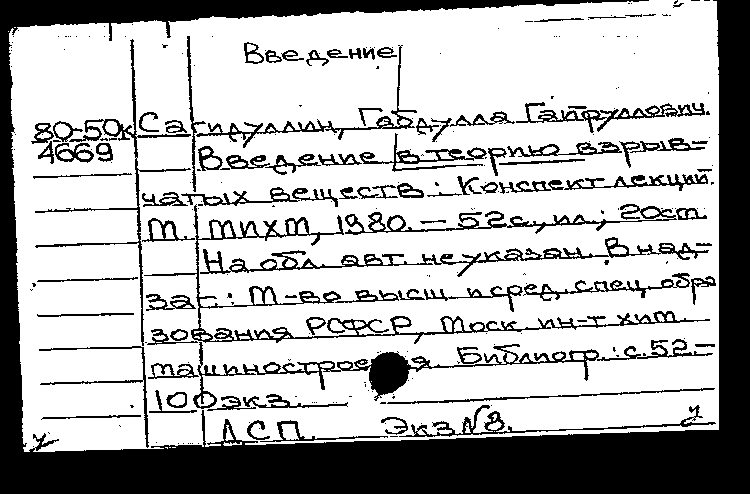 Введение
80-50к Сагидуллин, Габдулла Гайфуллович.
4669 Введение в теорию взрыв-
чатых веществ: Конспект лекций.
М. МИХМ, 1980. — 52с., ил.; 20см.
На обл. авт. не указан. В над-
заг.: М-во высш. и сред. спец. обра
зования РСФСР, Моск. ин-т хим.
машиностроения. Библиогр.: с. 52. —
100 экз.
ДСП. Экз №8.